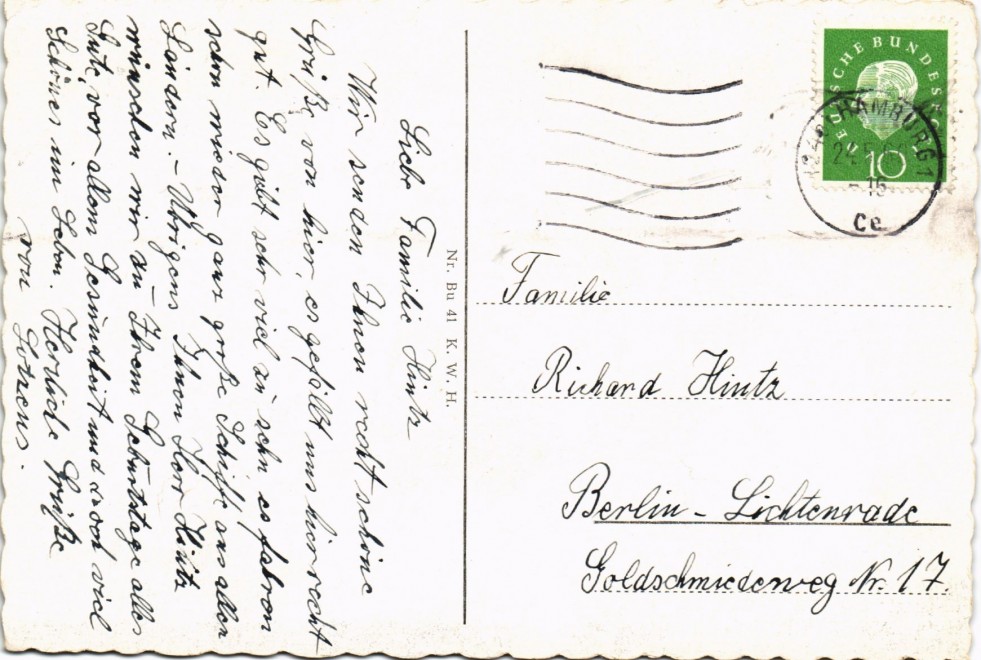 Liebe Familie Hintz
Wir senden Ihnen recht schöne
Grüße von hier, es gefällt uns hier recht
gut. Es gibt sehr viel an sehn es fahren
schon wieder ganz große Schiffe aus allen
Ländern. - Übrigens Ihnen Herr Hintz
wünschen wir zu Ihrem Geburtstage alles
Gute, vor allem Gesundheit und noch viel
Schönes im Leben. Herzliche Grüße
von
Nr. Bu 41 K. W. H.
DEUTSCHE BUNDESPOST
10
HAMBURG 1
Ce
Familie
Richard Hintz
Berlin - Lichtenrade
Goldschmiedeweg Nr. 17.